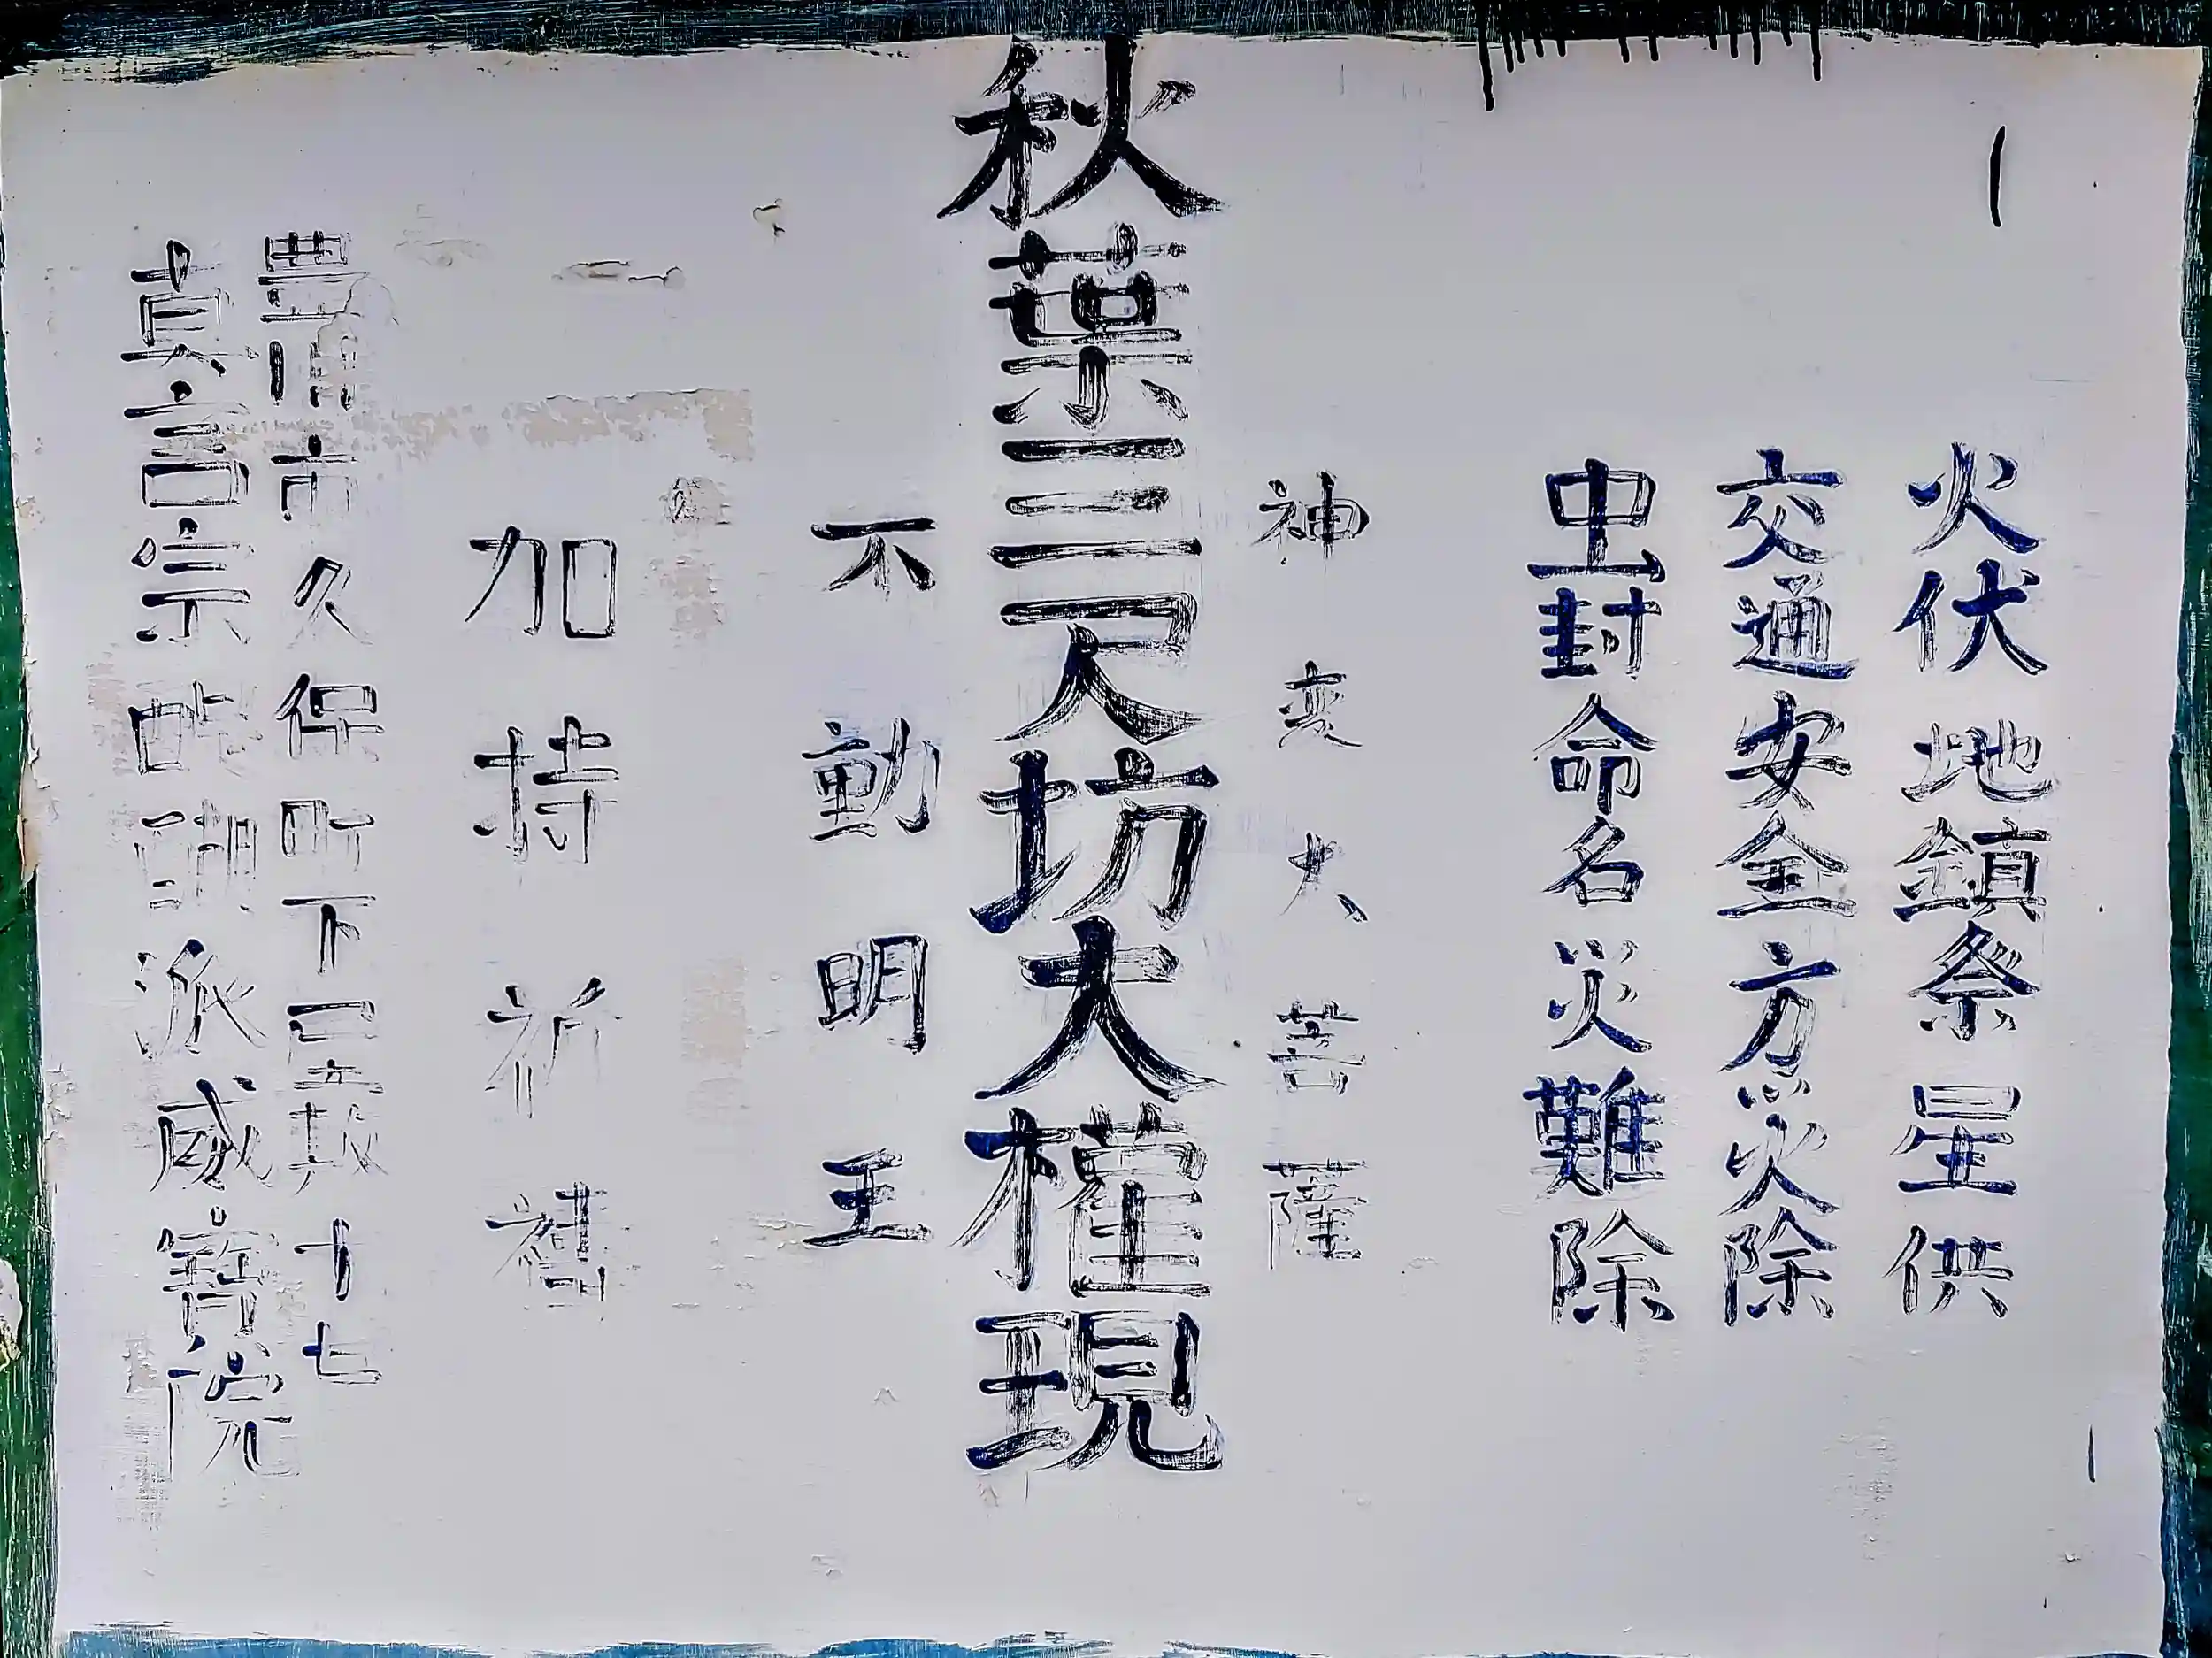 火伏地鎮祭星供
交通安全方災除
虫封命名災難除
神変大菩薩
秋葉三尺坊大権現
不動明王
加持祈
豊川市久保町下十七
真言宗醍醐派威寶院